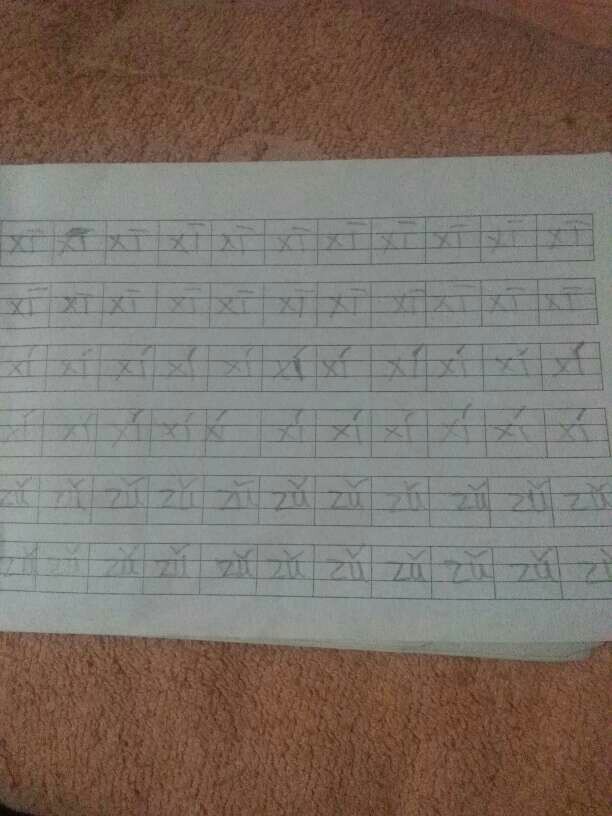 xī xī xī xī xī xī xī xī xī xī xī
xī xī xī xī xī xī xī xī xī xī xī
xí xí xí xí xí xí xí xí xí xí xí
xí xí xí xí xí xí xí xí xí xí xí
zǔ zǔ zǔ zǔ zǔ zǔ zǔ zǔ zǔ zǔ zǔ
zǔ zǔ zǔ zǔ zǔ zǔ zǔ zǔ zǔ zǔ